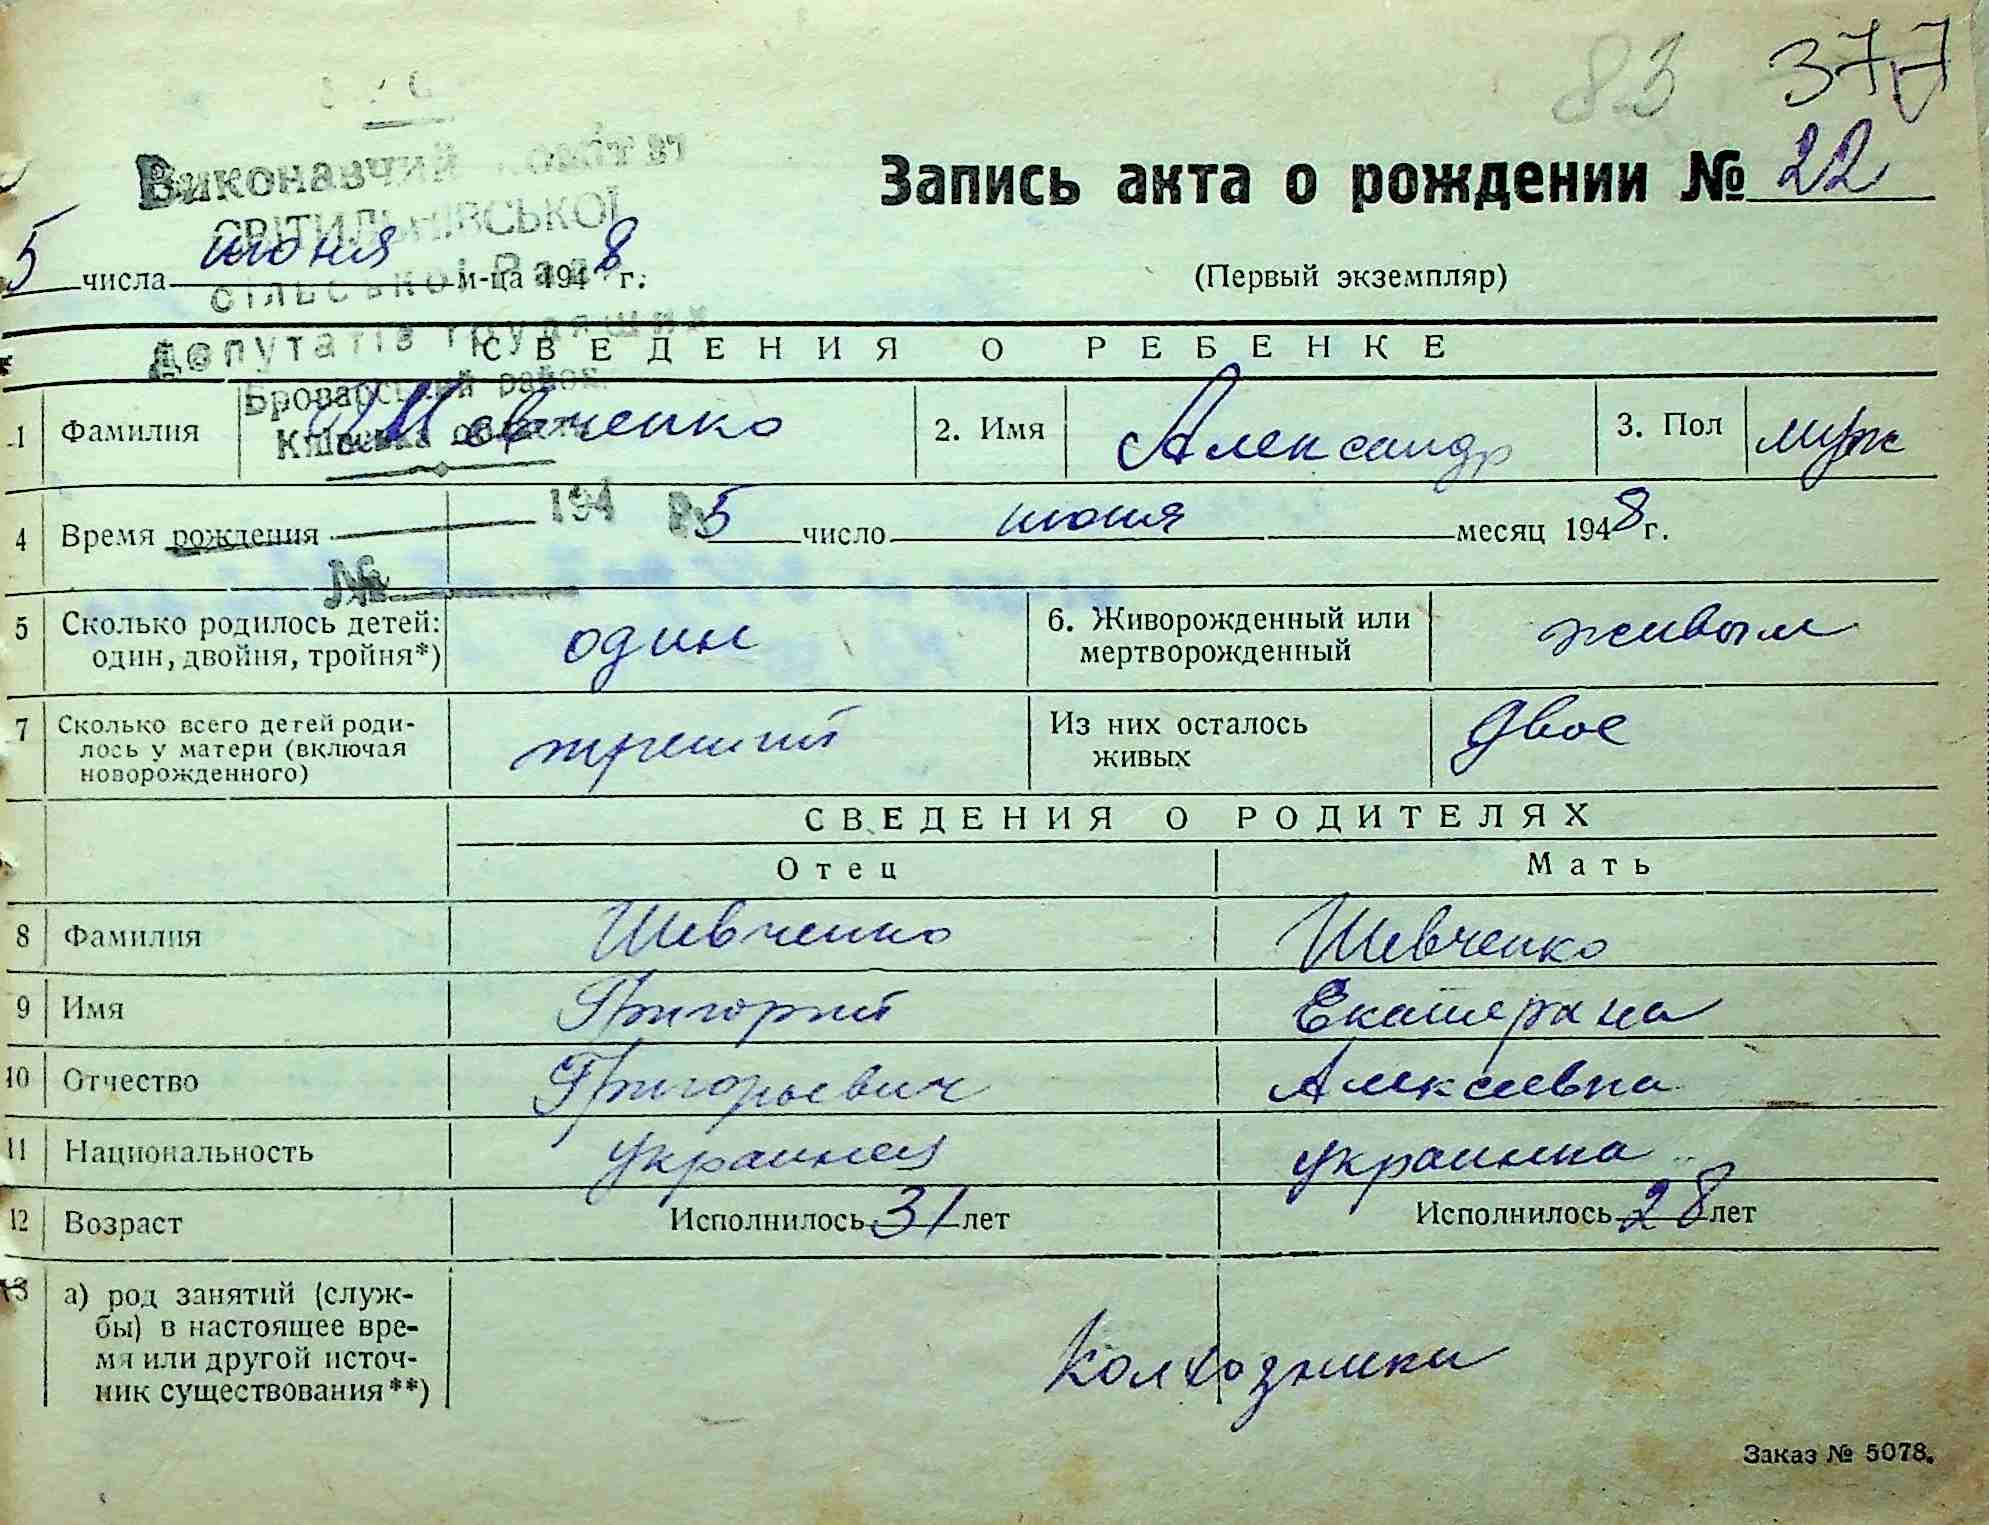 83 377
Виконавчий комітет
СВІТИЛЬНІВСЬКОЇ
сільської Ради
депутатів трудящих
Броварський район
Київська область
194 Р.
№
Запись акта о рождении № 22
5 числа июня м-ца 1948 г.
(Первый экземпляр)
СВЕДЕНИЯ О РЕБЕНКЕ
1 Фамилия Шевченко 2. Имя Александр 3. Пол муж
4 Время рождения 5 число июня месяц 1948 г.
5 Сколько родилось детей: один, двойня, тройня*) один 6. Живорожденный или мертворожденный живым
7 Сколько всего детей роди-
лось у матери (включая новорожденного) третий Из них осталось живых двое
СВЕДЕНИЯ О РОДИТЕЛЯХ
Отец Мать
8 Фамилия Шевченко Шевченко
9 Имя Григорий Екатерина
10 Отчество Григорьевич Алексеевна
11 Национальность украинец украинка
12 Возраст Исполнилось 31 лет Исполнилось 28 лет
13 а) род занятий (служ-
бы) в настоящее вре-
мя или другой источ-
ник существования**) Колхозники
Заказ № 5078.